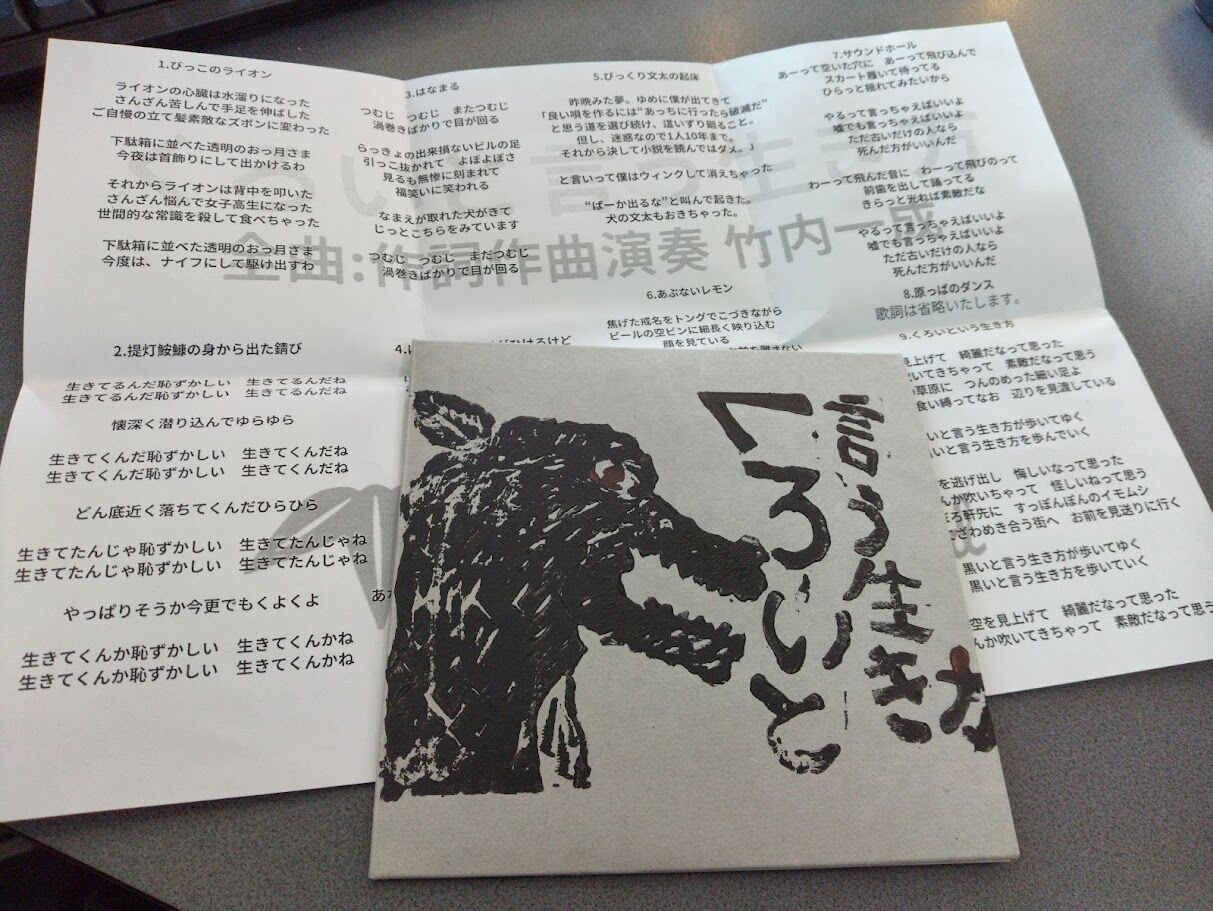 1.びっこのライオン
ライオンの心臓は水溜りになった
さんざん苦しんで手足を伸ばした
ご自慢の立て髪素敵なズボンに変わった
下駄箱に並べた透明のおっ月さま
今夜は首飾りにして出かけるわ
それからライオンは背中を叩いた
さんざん悩んで女子高生になった
世間的な常識を殺して食べちゃった
下駄箱に並べた透明のおっ月さま
今度は、ナイフにして駆け出すわ
2.提灯鮟鱇の身から出た錆び
生きてるんだ恥ずかしい　生きてるんだね
生きてるんだ恥ずかしい　生きてるんだね
懐深く潜り込んでゆらゆら
生きてくんだ恥ずかしい　生きてくんだね
生きてくんだ恥ずかしい　生きてくんだね
どん底近く落ちてくんだひらひら
生きてたんじゃ恥ずかしい　生きてたんじゃね
生きてたんじゃ恥ずかしい　生きてたんじゃね
やっぱりそうか今更でもくよくよ
生きてくんか恥ずかしい　生きてくんかね
生きてくんか恥ずかしい　生きてくんかね
3.はなまる
つむじ　つむじ　またつむじ
渦巻きばかりで目が回る
らっきょの出来損ないビルの足
引っこ抜かれて　よぼよぼさ
見るも無惨に刻まれて
福笑いに笑われる
なまえが取れた犬がきて
じっとこちらをみています
つむじ　つむじ　まだつむじ
渦巻きばかりで目が回る
4.
けるけど
5.びっくり文太の起床
昨晩みた夢。ゆめに僕が出てきて
「良い唄を作るには“あっちに行ったら破滅だ”
と思う道を選び続け、這いずり廻ること。
但し、迷惑なので1人10年まで。
それから決して小説を読んではダメ。」
と言いって僕はウィンクして消えちゃった
“ばーか出るな”と叫んで起きた。
犬の文太もおきちゃった。
6.あぶないレモン
焦げた戒名をトングでこづきながら
ビールの空ビンに細長く映り込む
顔を見ている
7.サウンドホール
あーって空いた穴に　あーって飛び込んで
スカート履いて待ってる
ひらっと揺れてみたいから
やるって言っちゃえばいいよ
嘘でも言っちゃえばいいよ
ただ古いだけの人なら
死んだ方がいいんだ
わーって飛んだ音に　わーって飛びのって
前歯を出して踊ってる
きらっと光れば素敵だな
やるって言っちゃえばいいよ
嘘でも言っちゃえばいいよ
ただ古いだけの人なら
死んだ方がいいんだ
8.原っぱのダンス
歌詞は省略いたします。
9.くろいという生き方
見上げて　綺麗だなって思った
いてきちゃって　素敵だなって思う
草原に　つんのめった細い足よ
食い縛ってなお　辺りを見渡している
いと言う生き方が歩いてゆく
いと言う生き方を歩んでいく
を逃げ出し　悔しいなって思った
んか吹いちゃって　怪しいねって思う
ぼろ軒先に　すっぽんぽんのイモムシ
ざわめき合う街へ　お前を見送りに行く
黒いと言う生き方が歩いてゆく
黒いと言う生き方を歩いていく
空を見上げて　綺麗だなって思った
んか吹いてきちゃって　素敵だなって思う
いと言う生き方
全曲:作詞作曲演奏 竹内一成
くろいと
言う生き方